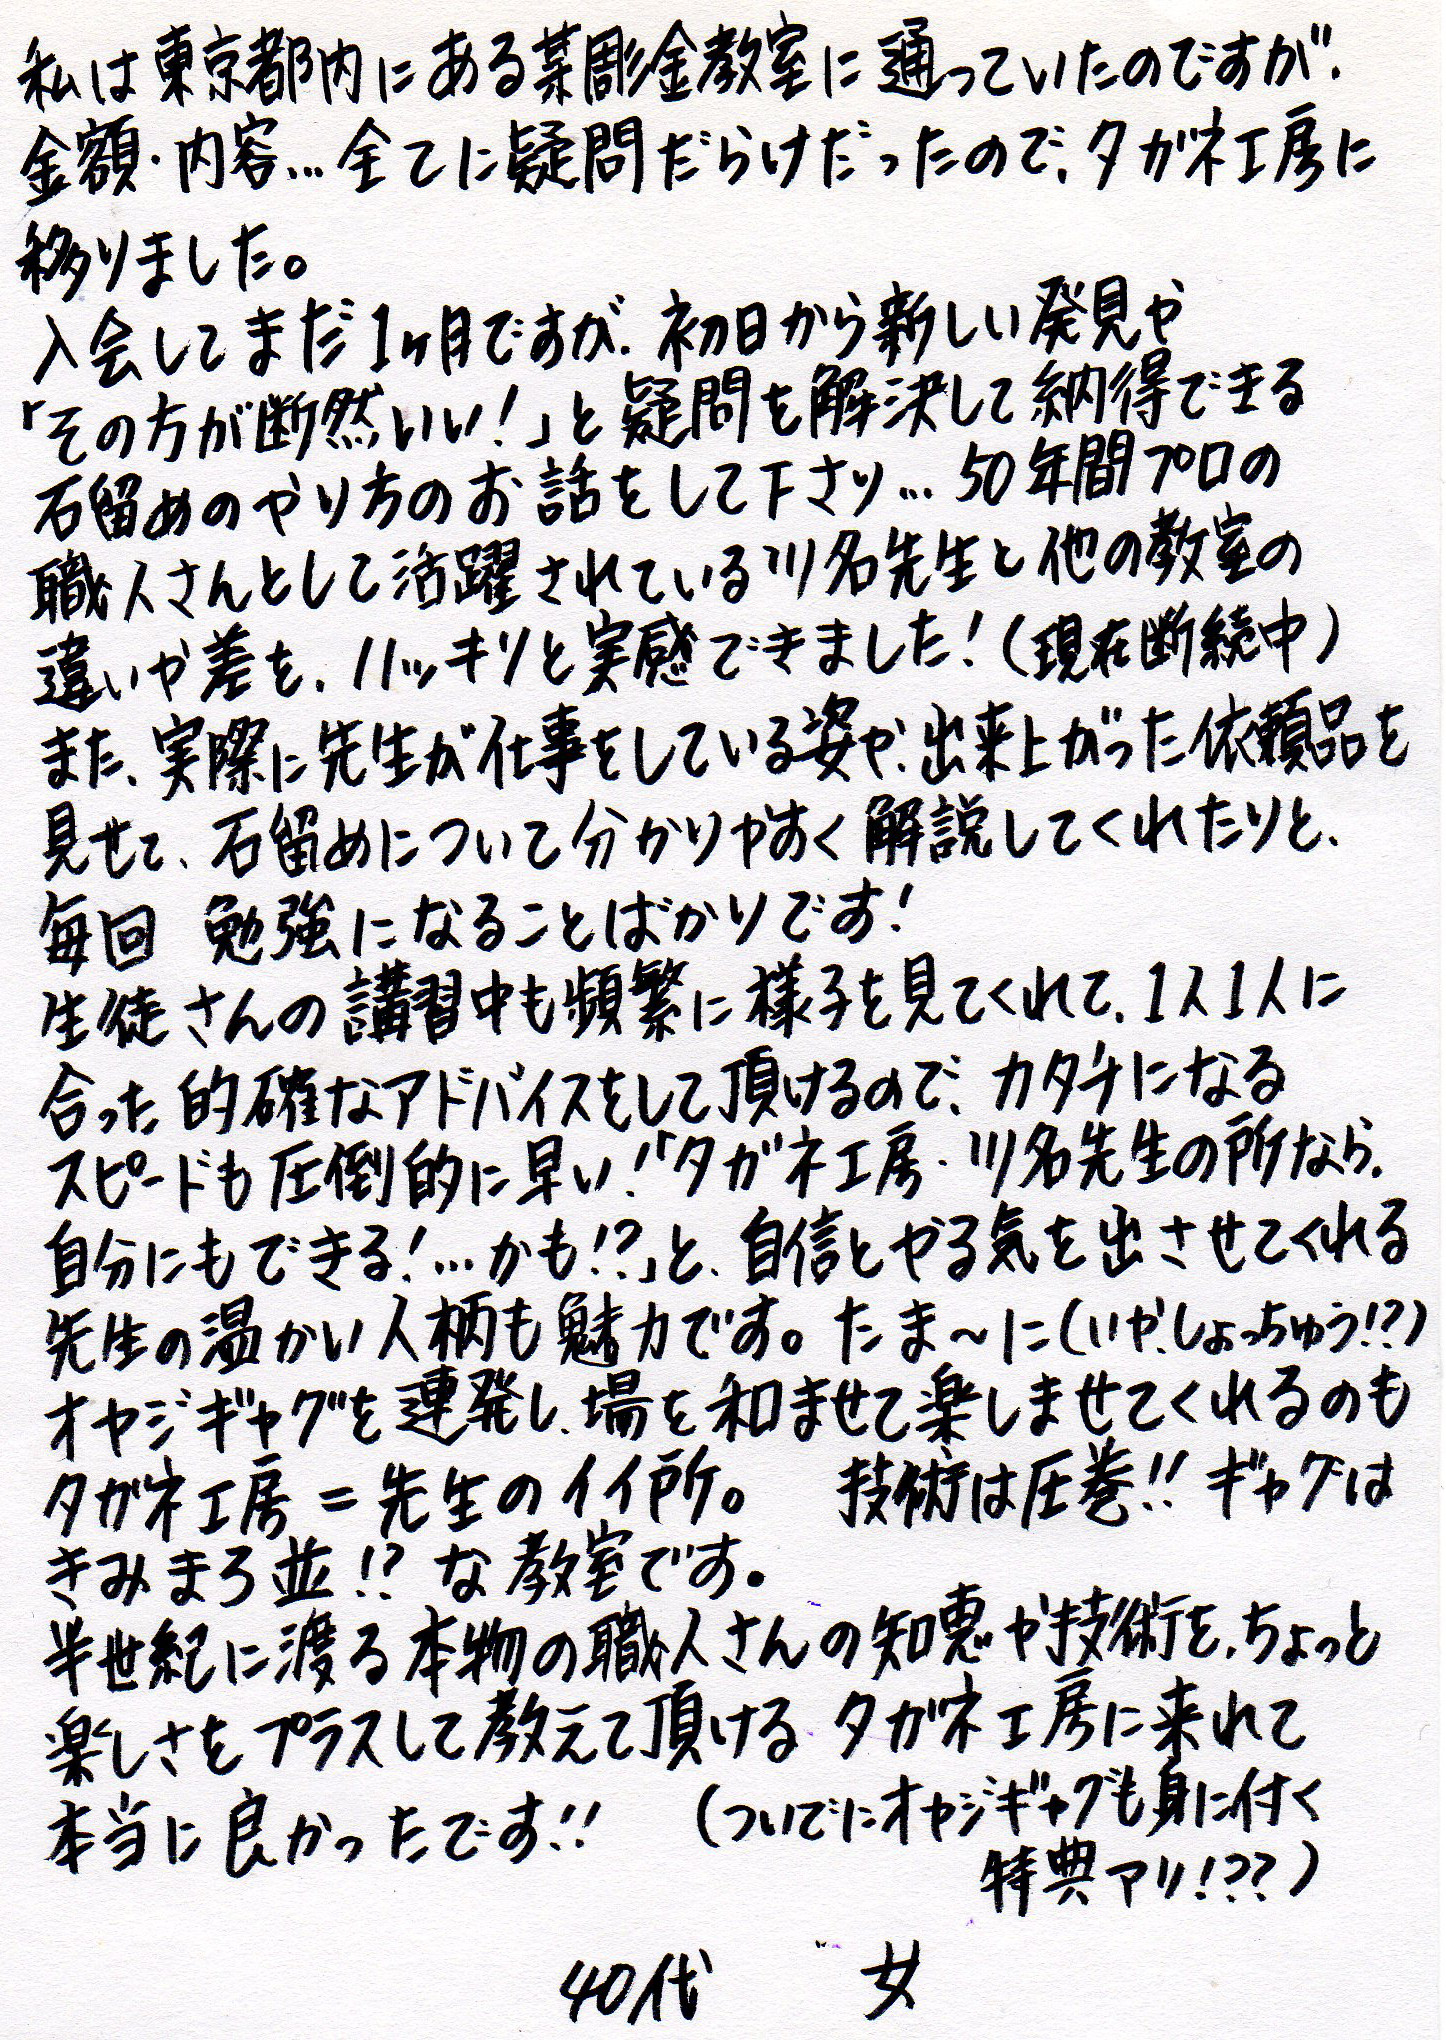 私は東京都内にある某彫金教室に通っていたのですが、
金額・内容…全てに疑問だらけだったので、タガネ工房に
移りました。
入会してまだ1ヶ月ですが、初日から新しい発見や
「その方が断然いい!」と疑問を解決して納得できる
石留めのやり方のお話をして下さり…50年間プロの
職人さんとして活躍されている川名先生と他の教室の
違いや差を、ハッキリと実感できました!(現在断続中)
また、実際に先生が仕事をしている姿や、出来上がった依頼品を
見せて、石留めについて分かりやすく解説してくれたりと、
毎回 勉強になることばかりです!
生徒さんの講習中も頻繁に様子を見てくれて、1人1人に
合った的確なアドバイスをして頂けるので、カタチになる
スピードも圧倒的に早い!「タガネ工房・川名先生の所なら、
自分にもできる!…かも!?」と、自信とやる気を出させてくれる
先生の温かい人柄も魅力です。たま~に(いや、しょっちゅう!?)
オヤジギャグを連発し、場を和ませて楽しませてくれるのも
タガネ工房=先生のイイ所。 技術は圧巻!! ギャグは
きみまろ並!? な教室です。
半世紀に渡る本物の職人さんの知恵や技術を、ちょっと
楽しさをプラスして教えて頂ける タガネ工房に来れて
本当に良かったです!! (ついでにオヤジギャグも身に付く
特典アリ!??)
40代 女